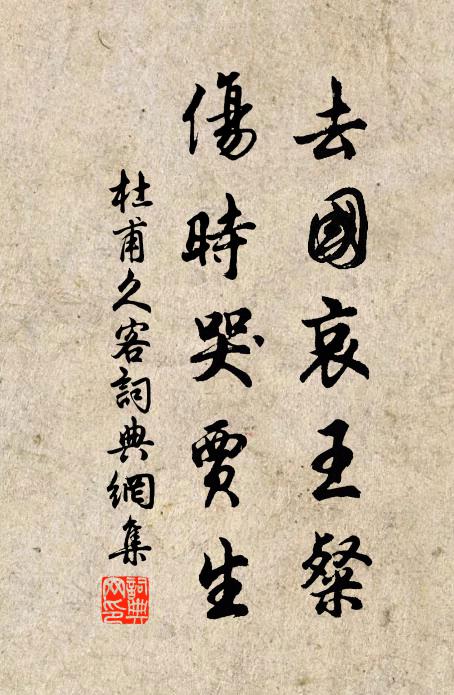 去國哀王粲
傷時哭賈生
杜甫久客詞典網集
詞典网印